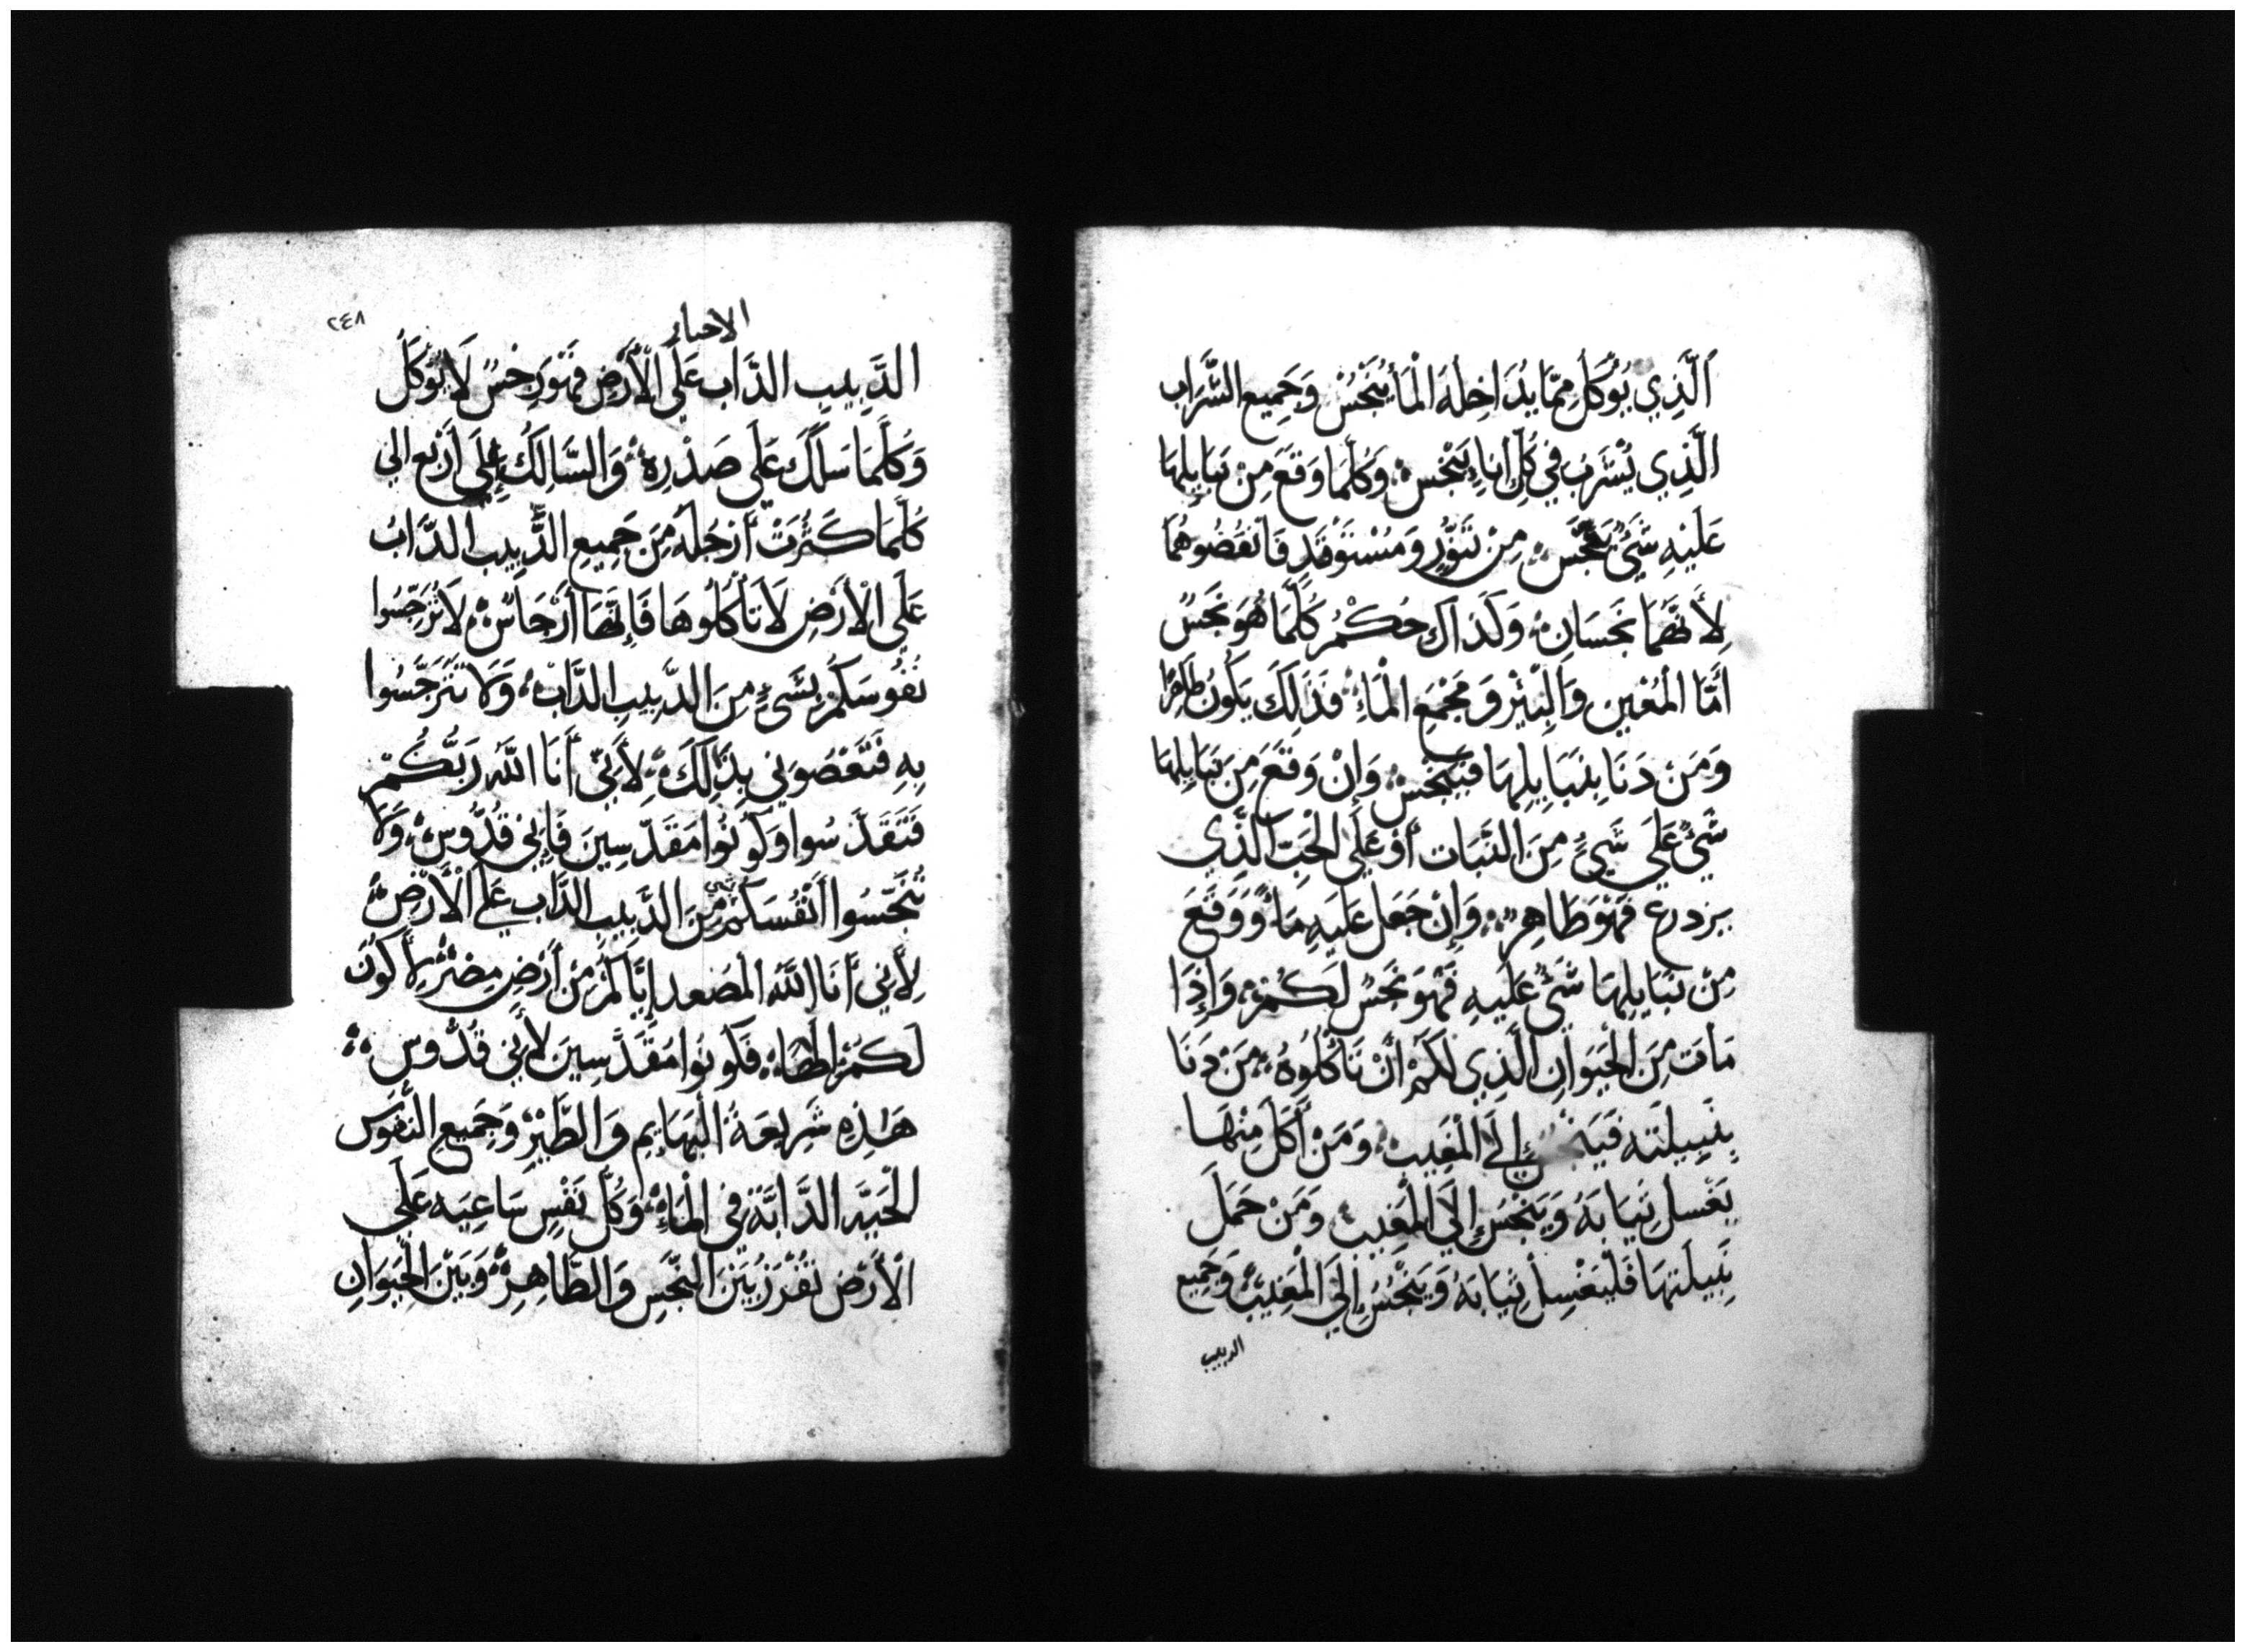 اَلَّذِي يُوْكَلُ مِمَّا يُدَاخِلَهُ الْمَاُ يُنَجِّسُ وَجَمِيعِ الشَّرَاب
الَّذِي يُشْرَبُ فِي كُلِّ اِنَاءٍ يَنْجَسْ وَكُلَّمَا وَقَعَ مِنْ نَبَايِلِهَا
عَلَيْهِ شَيْءٌ يَنْجَسْ مِنْ تَنُّورٍ وَمُسْتَوْقَدٍ فَانْقُضُوهُمَا
لِأَنَّهُمَا نَجِسَانِ وَكَذَاكَ حُكْمُ كُلَّمَا هُوَ نَجَسٌ
أَمَّا الْمُعِينِ وَالْبِئْرِ وَمَجْمَعِ الْمَاءِ فَذَلِكَ يَكُونُ طَاهِرًا
وَمَنْ دَنَا بِنَبَايِلِهَا فَيَنْجَسْ وَإِنْ وَقَعَ مِنَ نَبَايِلِهَا
شَيْءٌ عَلَي شَيْءٍ مِنَ النَّبَات أَوْ عَلَي الْحَبِّ الَّذِي
يزدرع فَهْوَ طَاهِر وَإِنْ جَعَل عَلَيهِ مَاءً وَوَقَعَ
مِنْ نَبَايِلِهَا شَيْءٌ عَلَيهِ فَهْوَ نَجَسٌ لَكُمْ وَإِذَا
مَات مِنَ الْحَيَوَانِ الَّذِي لَكُمْ أَنْ تَأْكُلُوهُ مَنْ دَنَا
بِنَبِيلَتِه إِلَي الْمَغِيب وَمَنْ أَكَلَ مِنْهَا
يَغْسِل ثِيَابَهُ وَيَنْجَسُ إِلَي الْمَغِيبِ وَمَنْ حَمَلَ
نَبِيلَتهَا فَلْيَغْسِلْ ثِيَابَهُ وَيَنْجَسُ إِلَي الْمَغِيبِ وَجَمِيع
الدبيب
٢٤٨
الاحبار
الدَّبِيبِ الدَّاب عَلَي الْأَرْضِ فَهْوَ رِجْسٌ لَا يُؤْكَلُ
وَكُلَّمَا سَلَكَ عَلَي صَدْرِهِ وَالسَّالِكُ عَلَي أَرْبَعِ الي
كُلَّمَا كَثُرَتْ أَرْجُلَهُ مِنَ جَمِيعِ الدَّبِيبِ الدَّابُ
عَلَي الْأَرْضِ لَا تَأْكُلُوهَا فَإِنَّهَا أَرْجَاسٌ لَا تُرَجِّسُوا
نُفُوسَكُمْ بِشَيْءٍ مِنَ الدَّبِيبِ الدَّابْ وَلَا تَتَرَجَّسُوا
بِهِ فَتَعْصُونِي بِذَالِكَ لِأَنِّي أَنَا اللَّهُ رَبُّكُمْ
فَتَقَدَّسُوا وَكُونُوا مَقَدَّسِينَ فَإِنِي قُدُّوس وَلَا
تُنَجِّسُوا أَنْفُسَكُمْ بشي مِنَ الدَّبِيبِ الدَّاب عَلي الْأَرْضْ
لِأَنِي أَنَا اللَّهُ الْمُصَعد اِيَّاكُمْ مِنْ أَرْضِ مِصْرَ لِأَكُونَ
لَكُمْ اِلَهًا فَكُونُوا مَقَدَّسِينَ لِأَنِي قُدُّوس
هَذِهِ شَرِيعَةُ الْبَهَايِمِ وَالطَّيْرِ وَجَمِيع النُّفُوس
الْحَيَه الدَّابَّة فِي الْمَاءْ وَكُلّ نَفْسٍ سَاعِيَه عَلَي
الْأَرْض تُفْرَزُ بَيْنَ النَّجِس وَالطَّاهِرْ وَبَيْنَ الْحَيَوَانِ